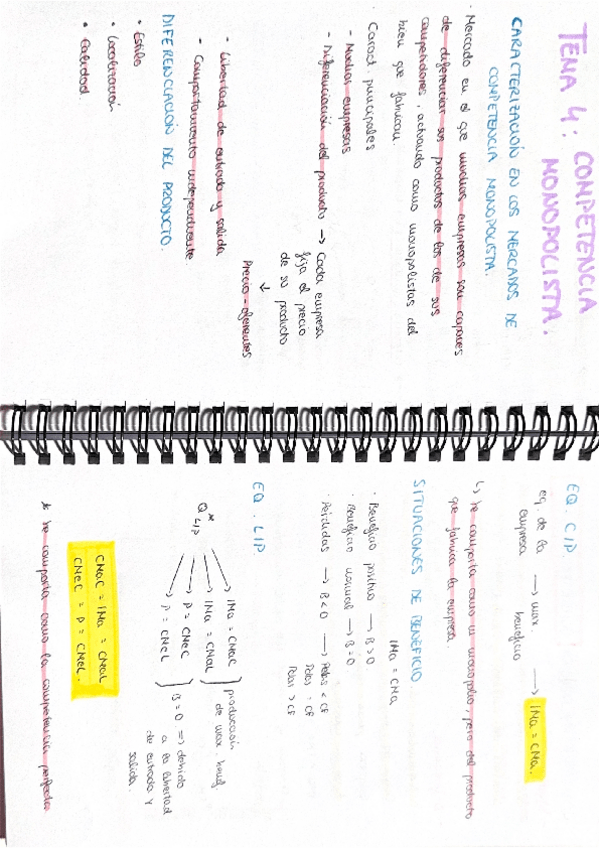 TEMA 4: COMPETENCIA
MONOPOLISTA.
CARACTERIZACIÓN EN LOS MERCADOS DE
COMPETENCIA MONOPOLISTA.
· Mercado en el que muchas empresas son capaces
de diferenciar sus productos de los de sus
competidores, actuando como monopolistas del
bien que fabrican.
· Caract. principales
- Muchas empresas
- Diferenciación del producto → Cada empresa
fija el precio
de su producto
↓
Precio-oferentes
- Libertad de entrada y salida
- Comportamiento independiente.
DIFERENCIACIÓN DEL PRODUCTO.
• Estilo
• Localización
• Calidad.
EQ. C/P.
eq. de la empresa → max. beneficio → IMa = CMa.
↳ se comporta como un monopolio, pero del producto
que fabrica la empresa
SITUACIONES DE BENEFICIO.
IMa = CMa
· Beneficio positivo → B > 0
· Beneficio normal → B = 0
· Pérdidas → B < 0 →
EQ. L/P.
Q* L/P
IMa = CMaC
IMa = CMaL
producción
de max. benef.
P = CMeC
P = CMeL
B = 0 ⇒ debido
a la libertad
de entrada y
salida.
CMaC = IMa = CMaL
CMeC = P = CMeL.
* Se comporta como la competencia perfecta